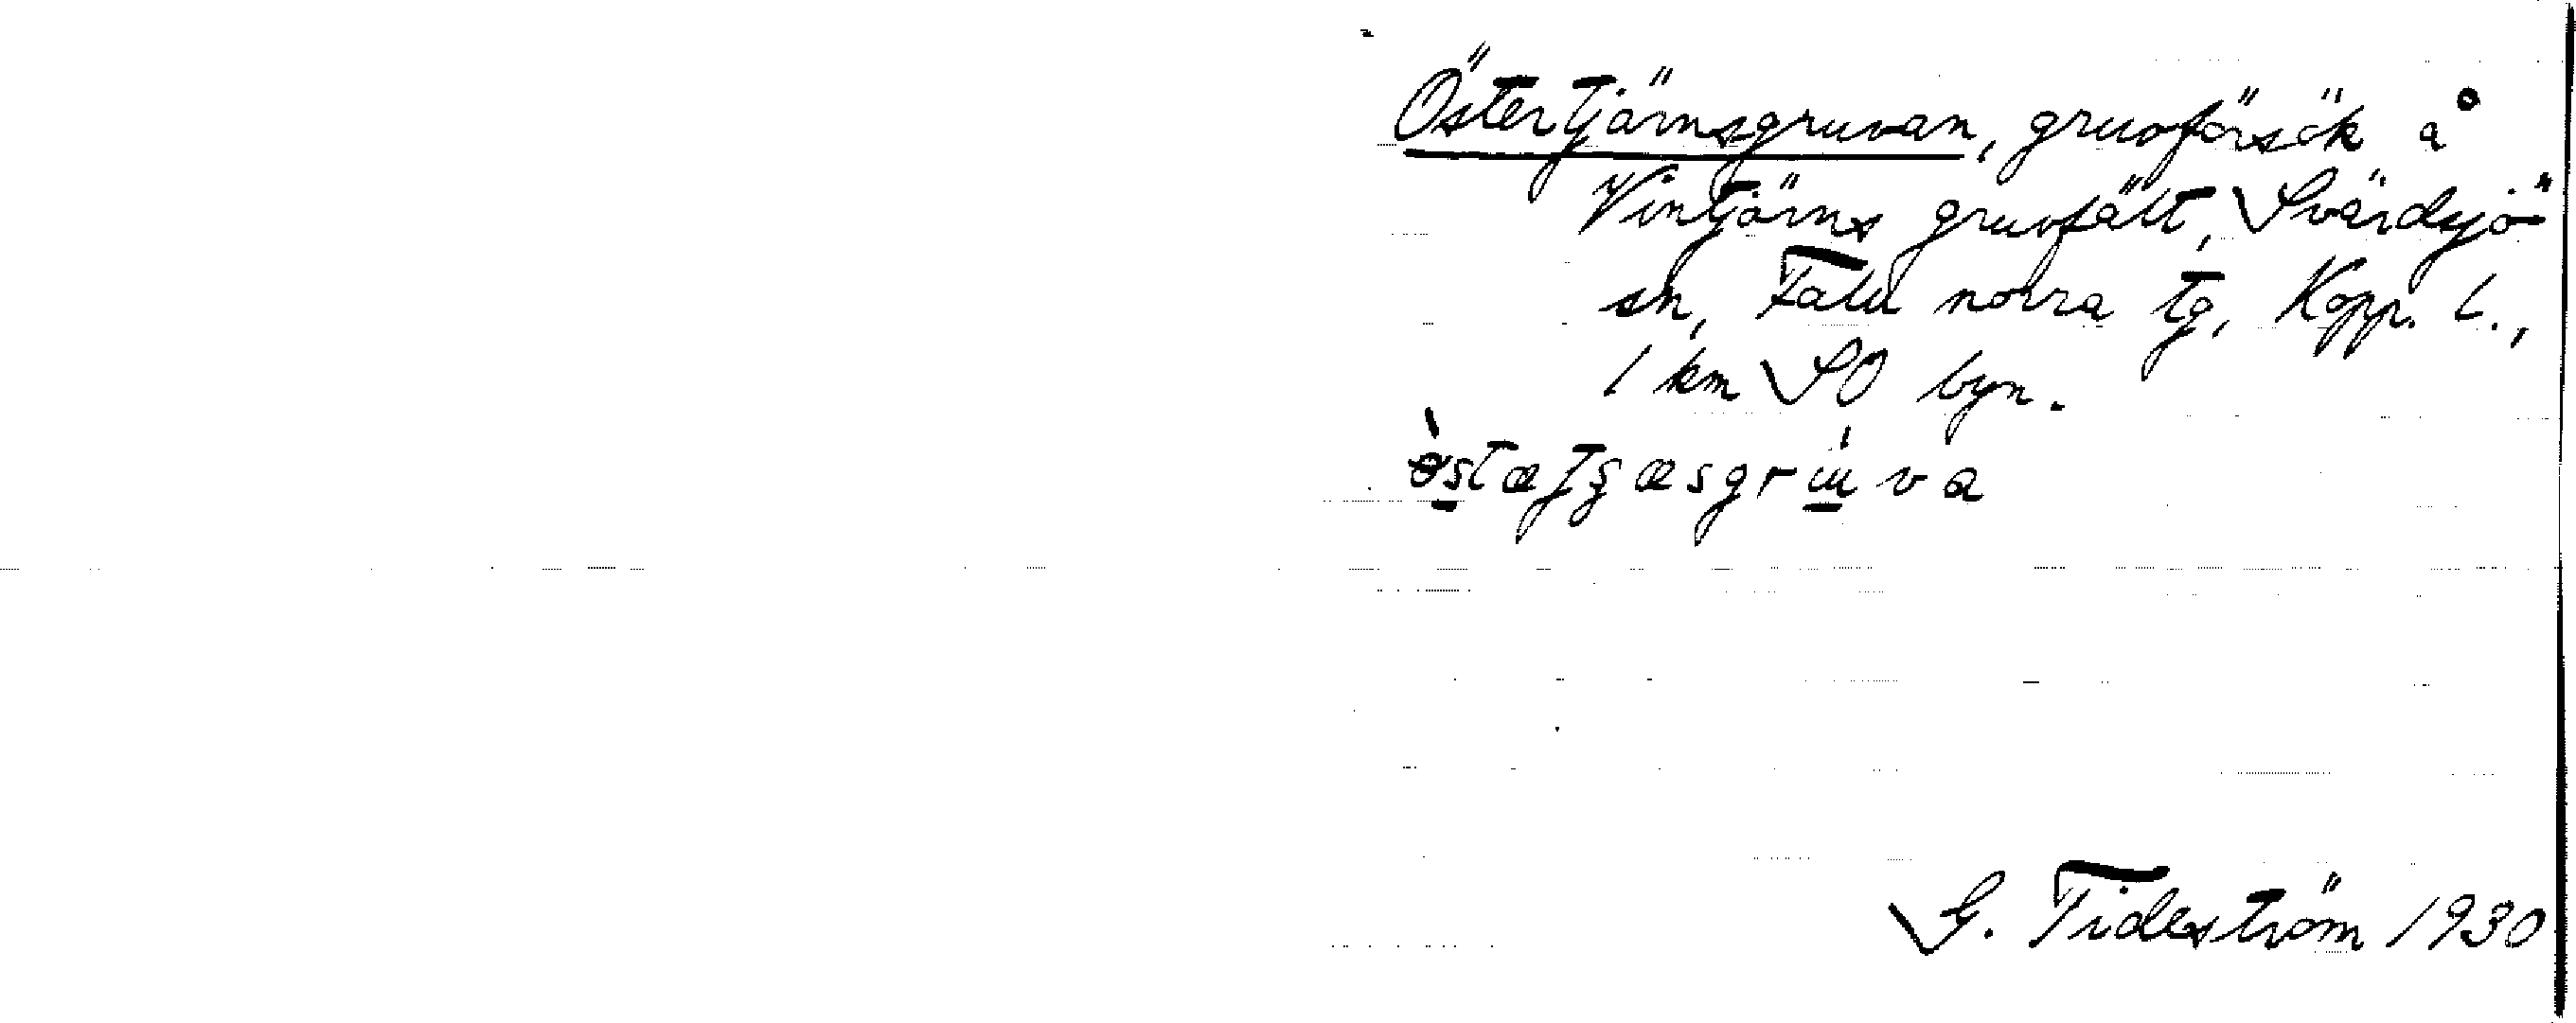 Östertjärnsgruvan, gruvförsök å
Vintjärns gruvfält, Svärdsjö
sn, Falu norra tg, Kopp. l.,
1 km SO byn.
G. Tideström 1930